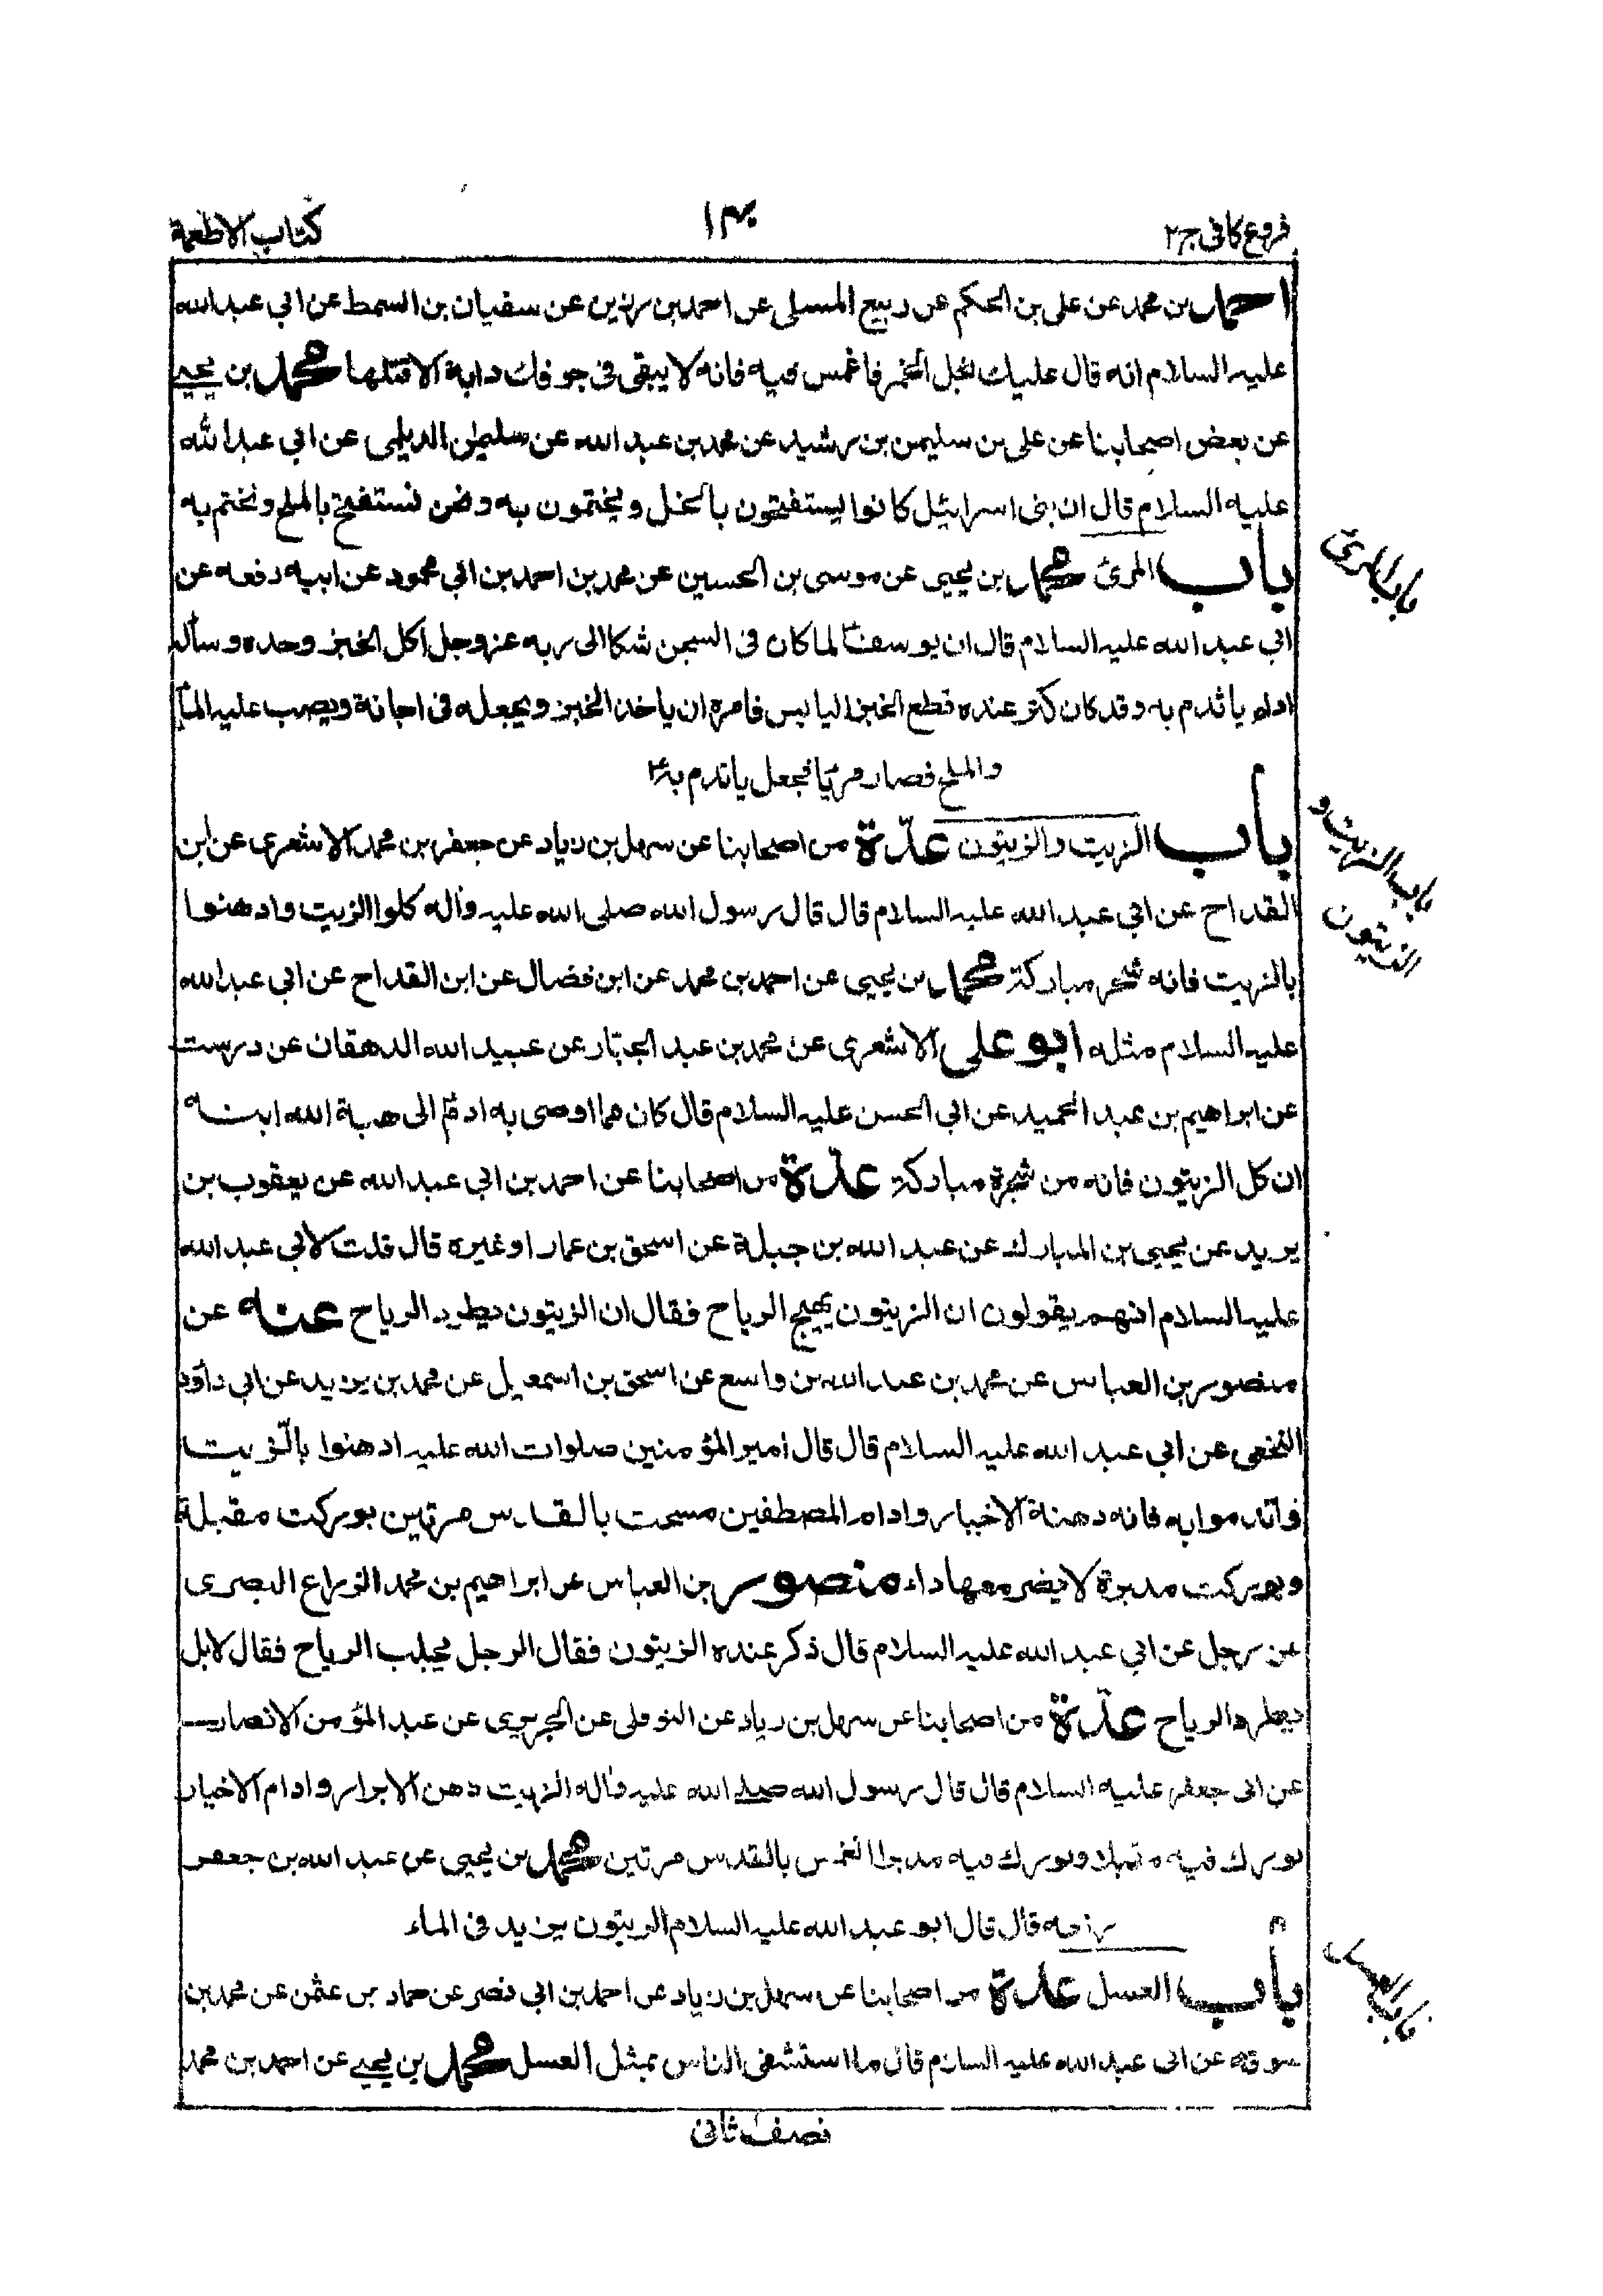 فروع كافى ج٢
١٣٠
كتاب الاطعمة
احمد بن محمد عن على بن الحكم عن ربيع المسلى عن احمد بن رزين عن سفيان بن السمط عن ابي عبد الله
عليه السلام انه قال عليك بخل الخمر فاغمس فيه فانه لا يبقى فى جوفك دابة الا قتلها محمد بن يحيى
عن بعض اصحابنا عن على بن سليمن بن رشيد عن محمد بن عبد الله عن سليمن الديلمى عن ابي عبد الله
عليه السلام قال ان بنى اسرائيل كانوا يستفتحون بالخل ويختمون به ونحن نستفتح بالملح ونختم به
باب المرئ محمد بن يحيى عن موسى بن الحسين عن محمد بن احمد بن ابي محمود عن ابيه رفعه عن
ابي عبد الله عليه السلام قال ان يوسف لما كان فى السجن شكا الى ربه عز وجل اكل الخبز وحده وسأله
اداما ياتدم به وقد كان كثر عنده قطع الخبز اليابس فامره ان ياخذ الخبز ويجعله فى اجانة ويصب عليه الماء
والملح فصار مريّا فجعل ياتدم به
باب الزيت والزيتون عدّة من اصحابنا عن سهل بن زياد عن جعفر بن محمد الاشعرى عن ابن
القداح عن ابي عبد الله عليه السلام قال قال رسول الله صلى الله عليه وآله كلوا الزيت وادهنوا
بالزيت فانه شجرة مباركة محمد بن يحيى عن احمد بن محمد عن ابن فضال عن ابن القداح عن ابي عبد الله
عليه السلام مثله ابو على الاشعرى عن محمد بن عبد الجبّار عن عبيد الله الدهقان عن درست
عن ابراهيم بن عبد الحميد عن ابي الحسن عليه السلام قال كان مما اوصى به ادم الى هبة الله ابنه
ان كل الزيتون فانه من شجرة مباركة عدّة من اصحابنا عن احمد بن ابي عبد الله عن يعقوب بن
يزيد عن يحيى بن المبارك عن عبد الله بن جبلة عن اسحق بن عمار او غيره قال قلت لابي عبد الله
عليه السلام انهم يقولون ان الزيتون يهيج الرياح فقال ان الزيتون يطرد الرياح عنه عن
منصور بن العباس عن محمد بن عبد الله بن واسع عن اسحق بن اسمعيل عن محمد بن يزيد عن ابي داؤد
النخعى عن ابي عبد الله عليه السلام قال قال امير المؤمنين صلوات الله عليه ادهنوا بالزيت
واتدموا به فانه دهنة الاخيار وادام المصطفين مسحت بالقدس مرتين بوركت مقبلة
وبوركت مدبرة لا يضر معها داء منصور بن العباس عن ابراهيم بن محمد الزراع البصرى
عن رجل عن ابي عبد الله عليه السلام قال ذكر عنده الزيتون فقال الرجل يجلب الرياح فقال لا بل
يطرد الرياح عدّة من اصحابنا عن سهل بن زياد عن النوفلى عن الجريرى عن عبد المؤمن الانصارى
عن ابى جعفر عليه السلام قال قال رسول الله صلى الله عليه وآله الزيت دهن الابرار وادام الاخيار
بورك فيه مقبلا وبورك فيه مدبرا انغمس بالقدس مرتين محمد بن يحيى عن عبد الله بن جعفر
رفعه قال قال ابو عبد الله عليه السلام الزيتون يزيد فى الماء
باب العسل عدة من اصحابنا عن سهل بن زياد عن احمد بن ابي نصر عن حماد بن عثمن عن محمد بن
سوقه عن ابى عبد الله عليه السلام قال ما استشفى الناس بمثل العسل محمد بن يحيى عن احمد بن محمد
نصف ثانى
باب المرئ
باب الزيت و
الزيتون
باب العسل